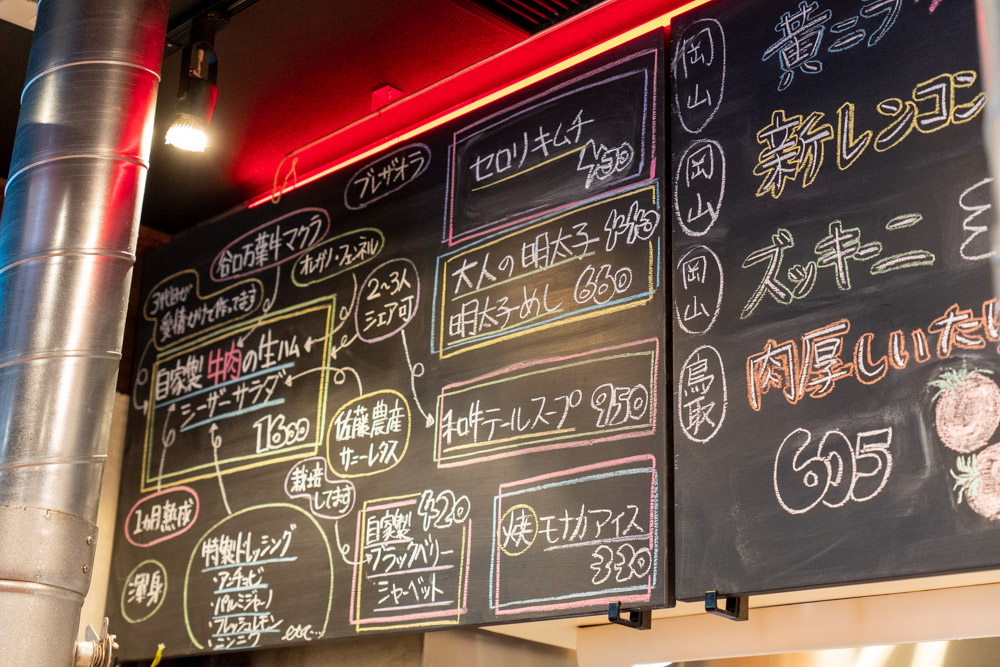 ブレザオラ
谷口万葉牛マクラ
オレガノ・フェンネル
3代目が
愛情かけて作ってます
2〜3人
シェア可
自家製牛肉の生ハム
シーザーサラダ
1600
佐藤農産
サニーレタス
1ヵ月熟成
渾身
特製ドレッシング
・アンチョビ
・パルミジャーノ
・フレッシュレモン
・ニンニク etc...
栽培
してます
自家製 420
ブラックベリー
シャーベット
セロリキムチ
430
大人の明太子 440
明太子めし 660
和牛テールスープ 950
焼モナカアイス
330
岡山
黄ニラ
岡山
新レンコン
岡山
ズッキーニ
鳥取
肉厚しいたけ
605